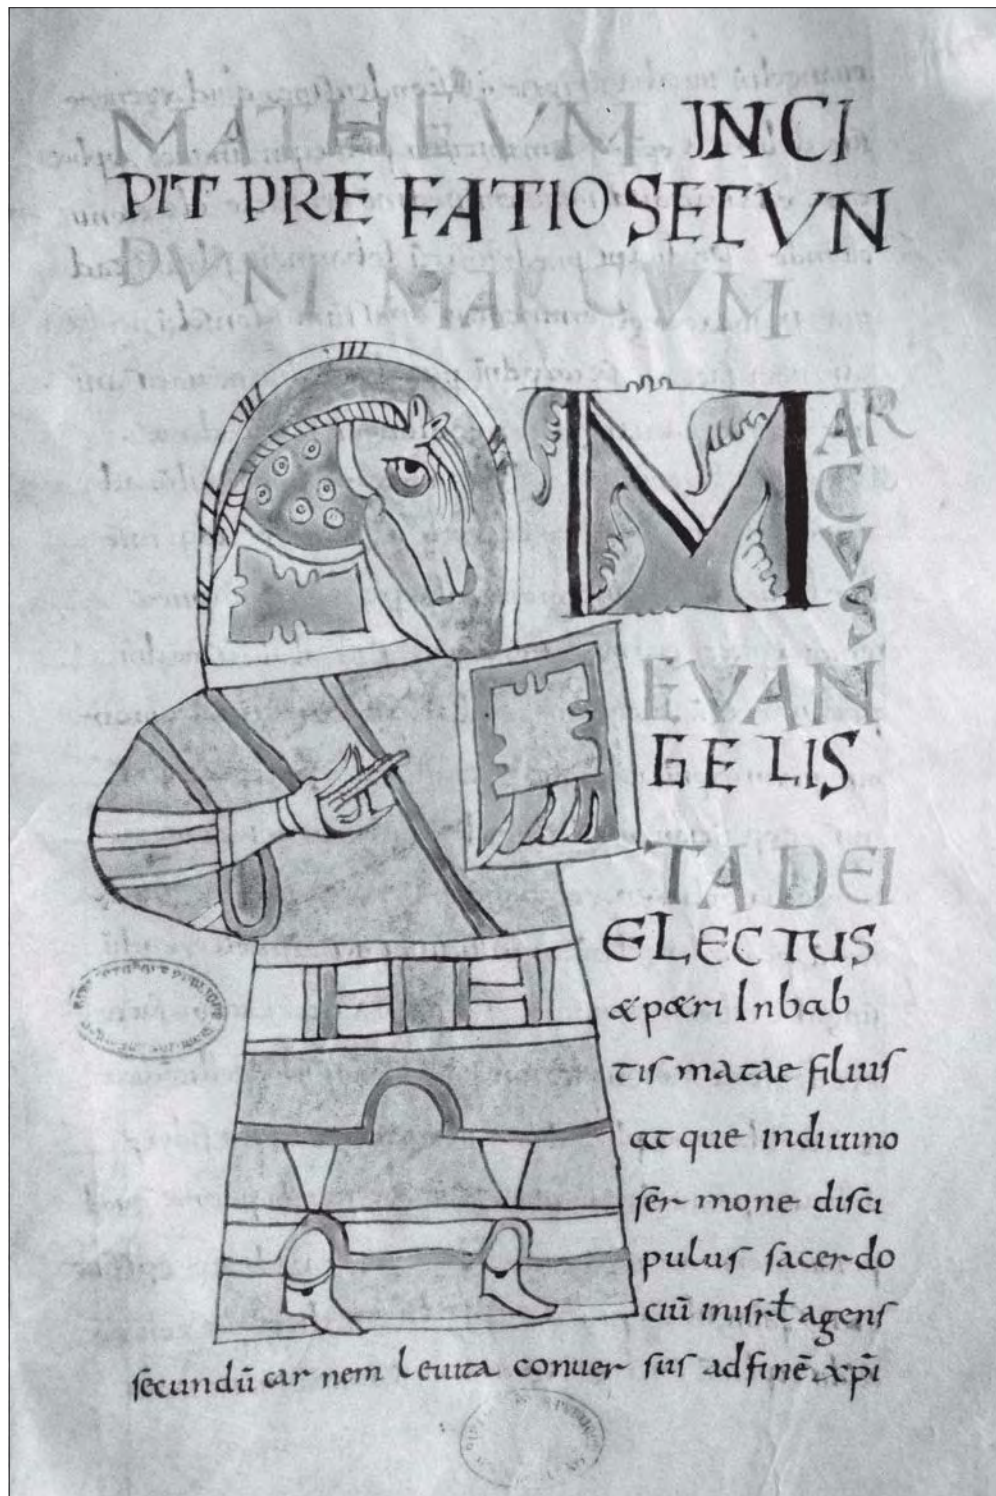 MATHEUM INCI
PIT PREFATIO SECUN
DUM MARCUM
MARCUS
EVAN
GELIS
TA DEI
ELECTUS
& p&ri Inbab
tis matae filius
at que indiuino
ser mone disci
pulus sacerdo
ciū inisrł agens
secundū car nem leuita conuer sus ad finē xp̄i